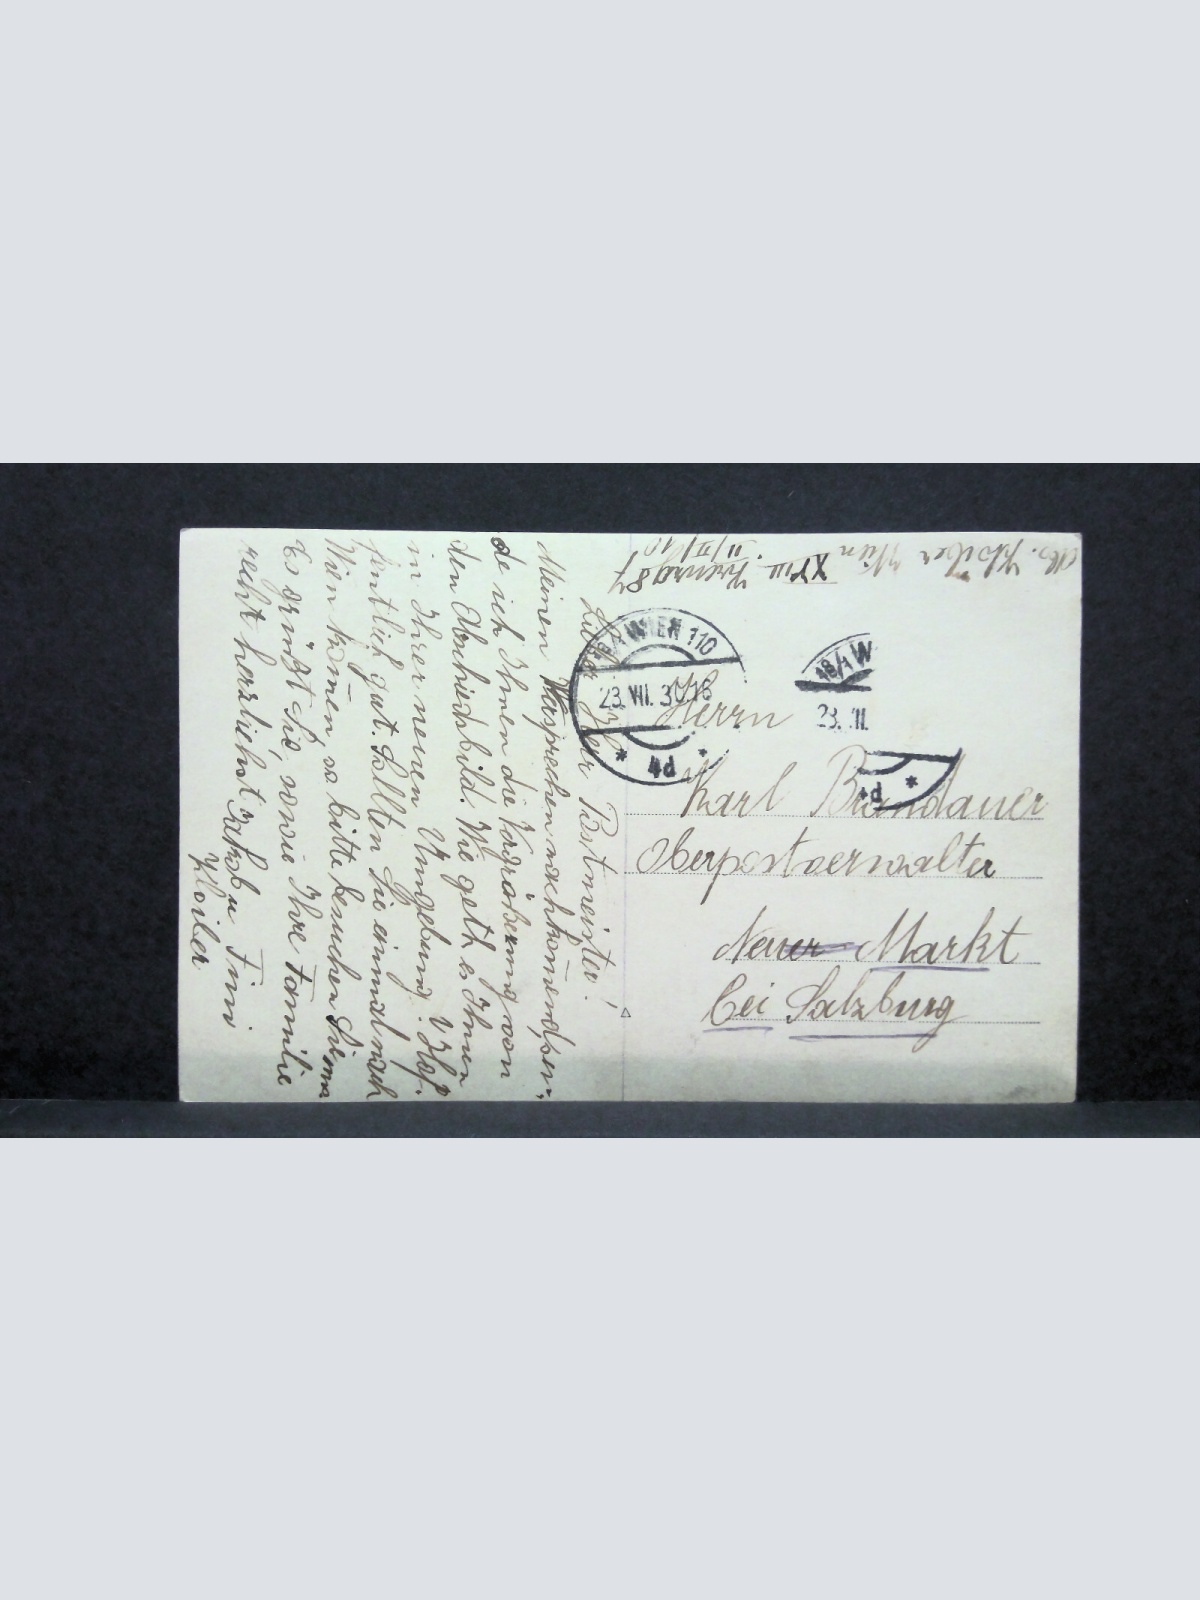 Lieber Herr Postmeister!
Meinen Versprechen nachkom̄end, sen-
de ich Ihnen die Vergrößerung von
den Abschiedsbild. Wie geth es Ihnen
in Ihrer neuen Umgebung? Hof-
fentlich gut. Sollten Sie einmal nach
Wien kom̄en, so bitte besuchen Sie mi
Es grüßt Sie, sowie Ihre Familie
recht herzlichst Jakob u Fini
Kloiber
Kloiber Wien
XVIII 87
II/II/10
18/1 WIEN 110
23. VII. 30. 16
* 4d *
18/1 W
23. VII.
*
Herrn
Karl Brandauer
Oberpostverwalter
Neuer Markt
bei Salzburg